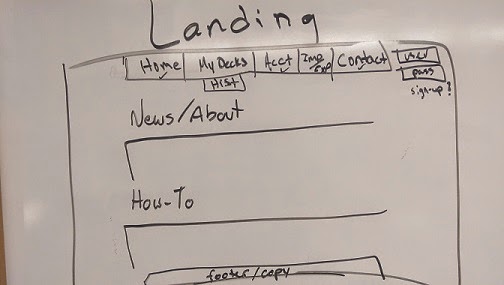 Landing
Home My Decks Acct Imp Exp Contact user
Hist pass
sign-up!
News/About
How-To
footer/copy